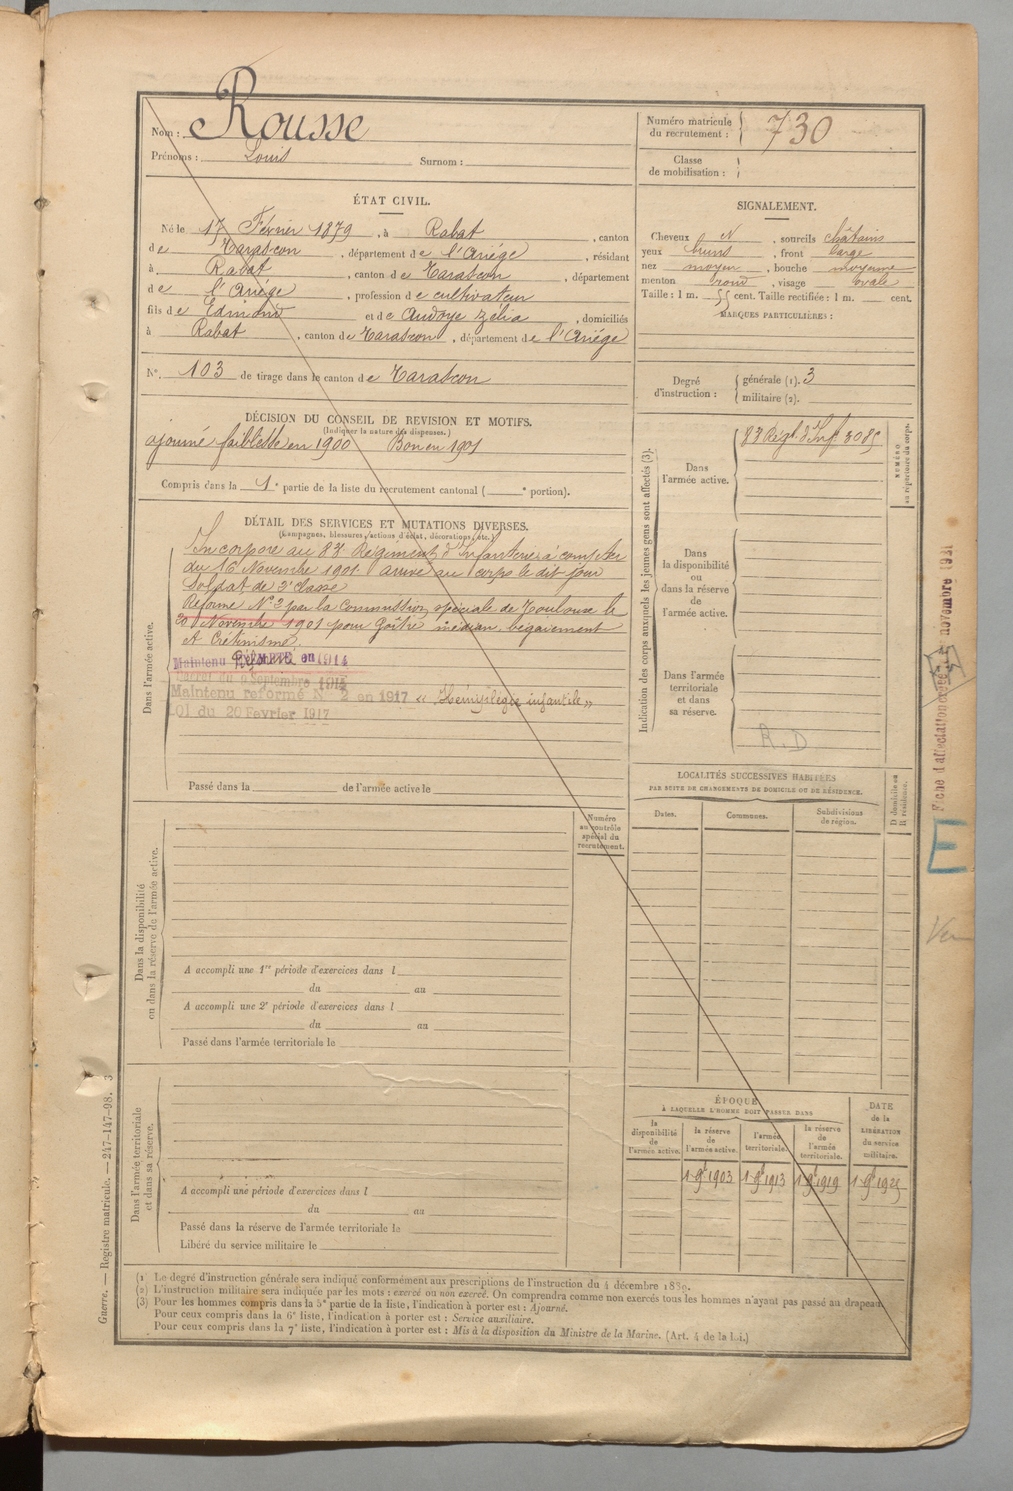 Nom : Rousse
Prénoms : Louis Surnom :
Numéro matricule du recrutement : 730
Classe de mobilisation :
ÉTAT CIVIL.
Né le 17 Février 1879, à Rabat, canton
de Tarascon, département de l'Ariége, résidant
à Rabat, canton de Tarascon, département
de l'Ariége, profession de cultivateur
fils de Edmond et de Audoye Zélia, domiciliés
à Rabat, canton de Tarascon, département de l'Ariége
N°. 103 de tirage dans le canton de Tarascon
SIGNALEMENT.
Cheveux N, sourcils châtains
yeux bruns, front large
nez moyen, bouche moyenne
menton rond, visage ovale
Taille : 1 m. 55 cent. Taille rectifiée : 1 m. cent.
MARQUES PARTICULIÈRES :
Degré d'instruction :
générale (1). 3
militaire (2).
DÉCISION DU CONSEIL DE REVISION ET MOTIFS.
(Indiquer la nature des dispenses.)
ajourné faiblesse en 1900 Bon en 1901
Compris dans la 1e partie de la liste du recrutement cantonal ( e portion).
DÉTAIL DES SERVICES ET MUTATIONS DIVERSES.
(Campagnes, blessures, actions d'éclat, décorations, etc.)
Dans l'armée active.
Incorporé au 83e Régiment d'Infanterie à compter
du 16 Novembre 1901 arrivé au corps le dit jour
Soldat de 2e Classe
Réformé No 2 par la Commission spéciale de Toulouse le
20 Novembre 1901 pour Goître médian, bégaiement
et Crétinisme
Maintenu Réformé en 1914
Décret du 9 Septembre 1914
Maintenu reformé N° 2 en 1917 « Hémiplégie infantile »
Loi du 20 Fevrier 1917
Passé dans la de l'armée active le
Indication des corps auxquels les jeunes gens sont affectés (3).
Dans l'armée active.
83 Régt. d'Inf. 3085
NUMÉRO au répertoire du corps.
Dans la disponibilité ou dans la réserve de l'armée active.
Dans l'armée territoriale et dans sa réserve.
R.D
LOCALITÉS SUCCESSIVES HABITÉES
PAR SUITE DE CHANGEMENTS DE DOMICILE OU DE RÉSIDENCE.
Dates. Communes. Subdivisions de région. D domicile ou R résidence.
Dans la disponibilité ou dans la réserve de l'armée active.
Numéro au contrôle spécial du recrutement.
A accompli une 1re période d'exercices dans l
du au
A accompli une 2e période d'exercices dans l
du au
Passé dans l'armée territoriale le
Dans l'armée territoriale et dans sa réserve.
A accompli une période d'exercices dans l
du au
Passé dans la réserve de l'armée territoriale le
Libéré du service militaire le
ÉPOQUE
À LAQUELLE L'HOMME DOIT PASSER DANS
la disponibilité de l'armée active. la réserve de l'armée active. l'armée territoriale. la réserve de l'armée territoriale.
DATE de la LIBÉRATION du service militaire.
1 9e 1903 1 9e 1913 1 9e 1919 1 9e 1925
Fiche d'affectation novembre 1931
E
Guerre. — Registre matricule. — 247-147-98. 3
(1) Le degré d'instruction générale sera indiqué conformément aux prescriptions de l'instruction du 4 décembre 1889.
(2) L'instruction militaire sera indiquée par les mots : exercé ou non exercé. On comprendra comme non exercés tous les hommes n'ayant pas passé au drapeau.
(3) Pour les hommes compris dans la 5e partie de la liste, l'indication à porter est : Ajourné.
Pour ceux compris dans la 6e liste, l'indication à porter est : Service auxiliaire.
Pour ceux compris dans la 7e liste, l'indication à porter est : Mis à la disposition du Ministre de la Marine. (Art. 4 de la loi.)